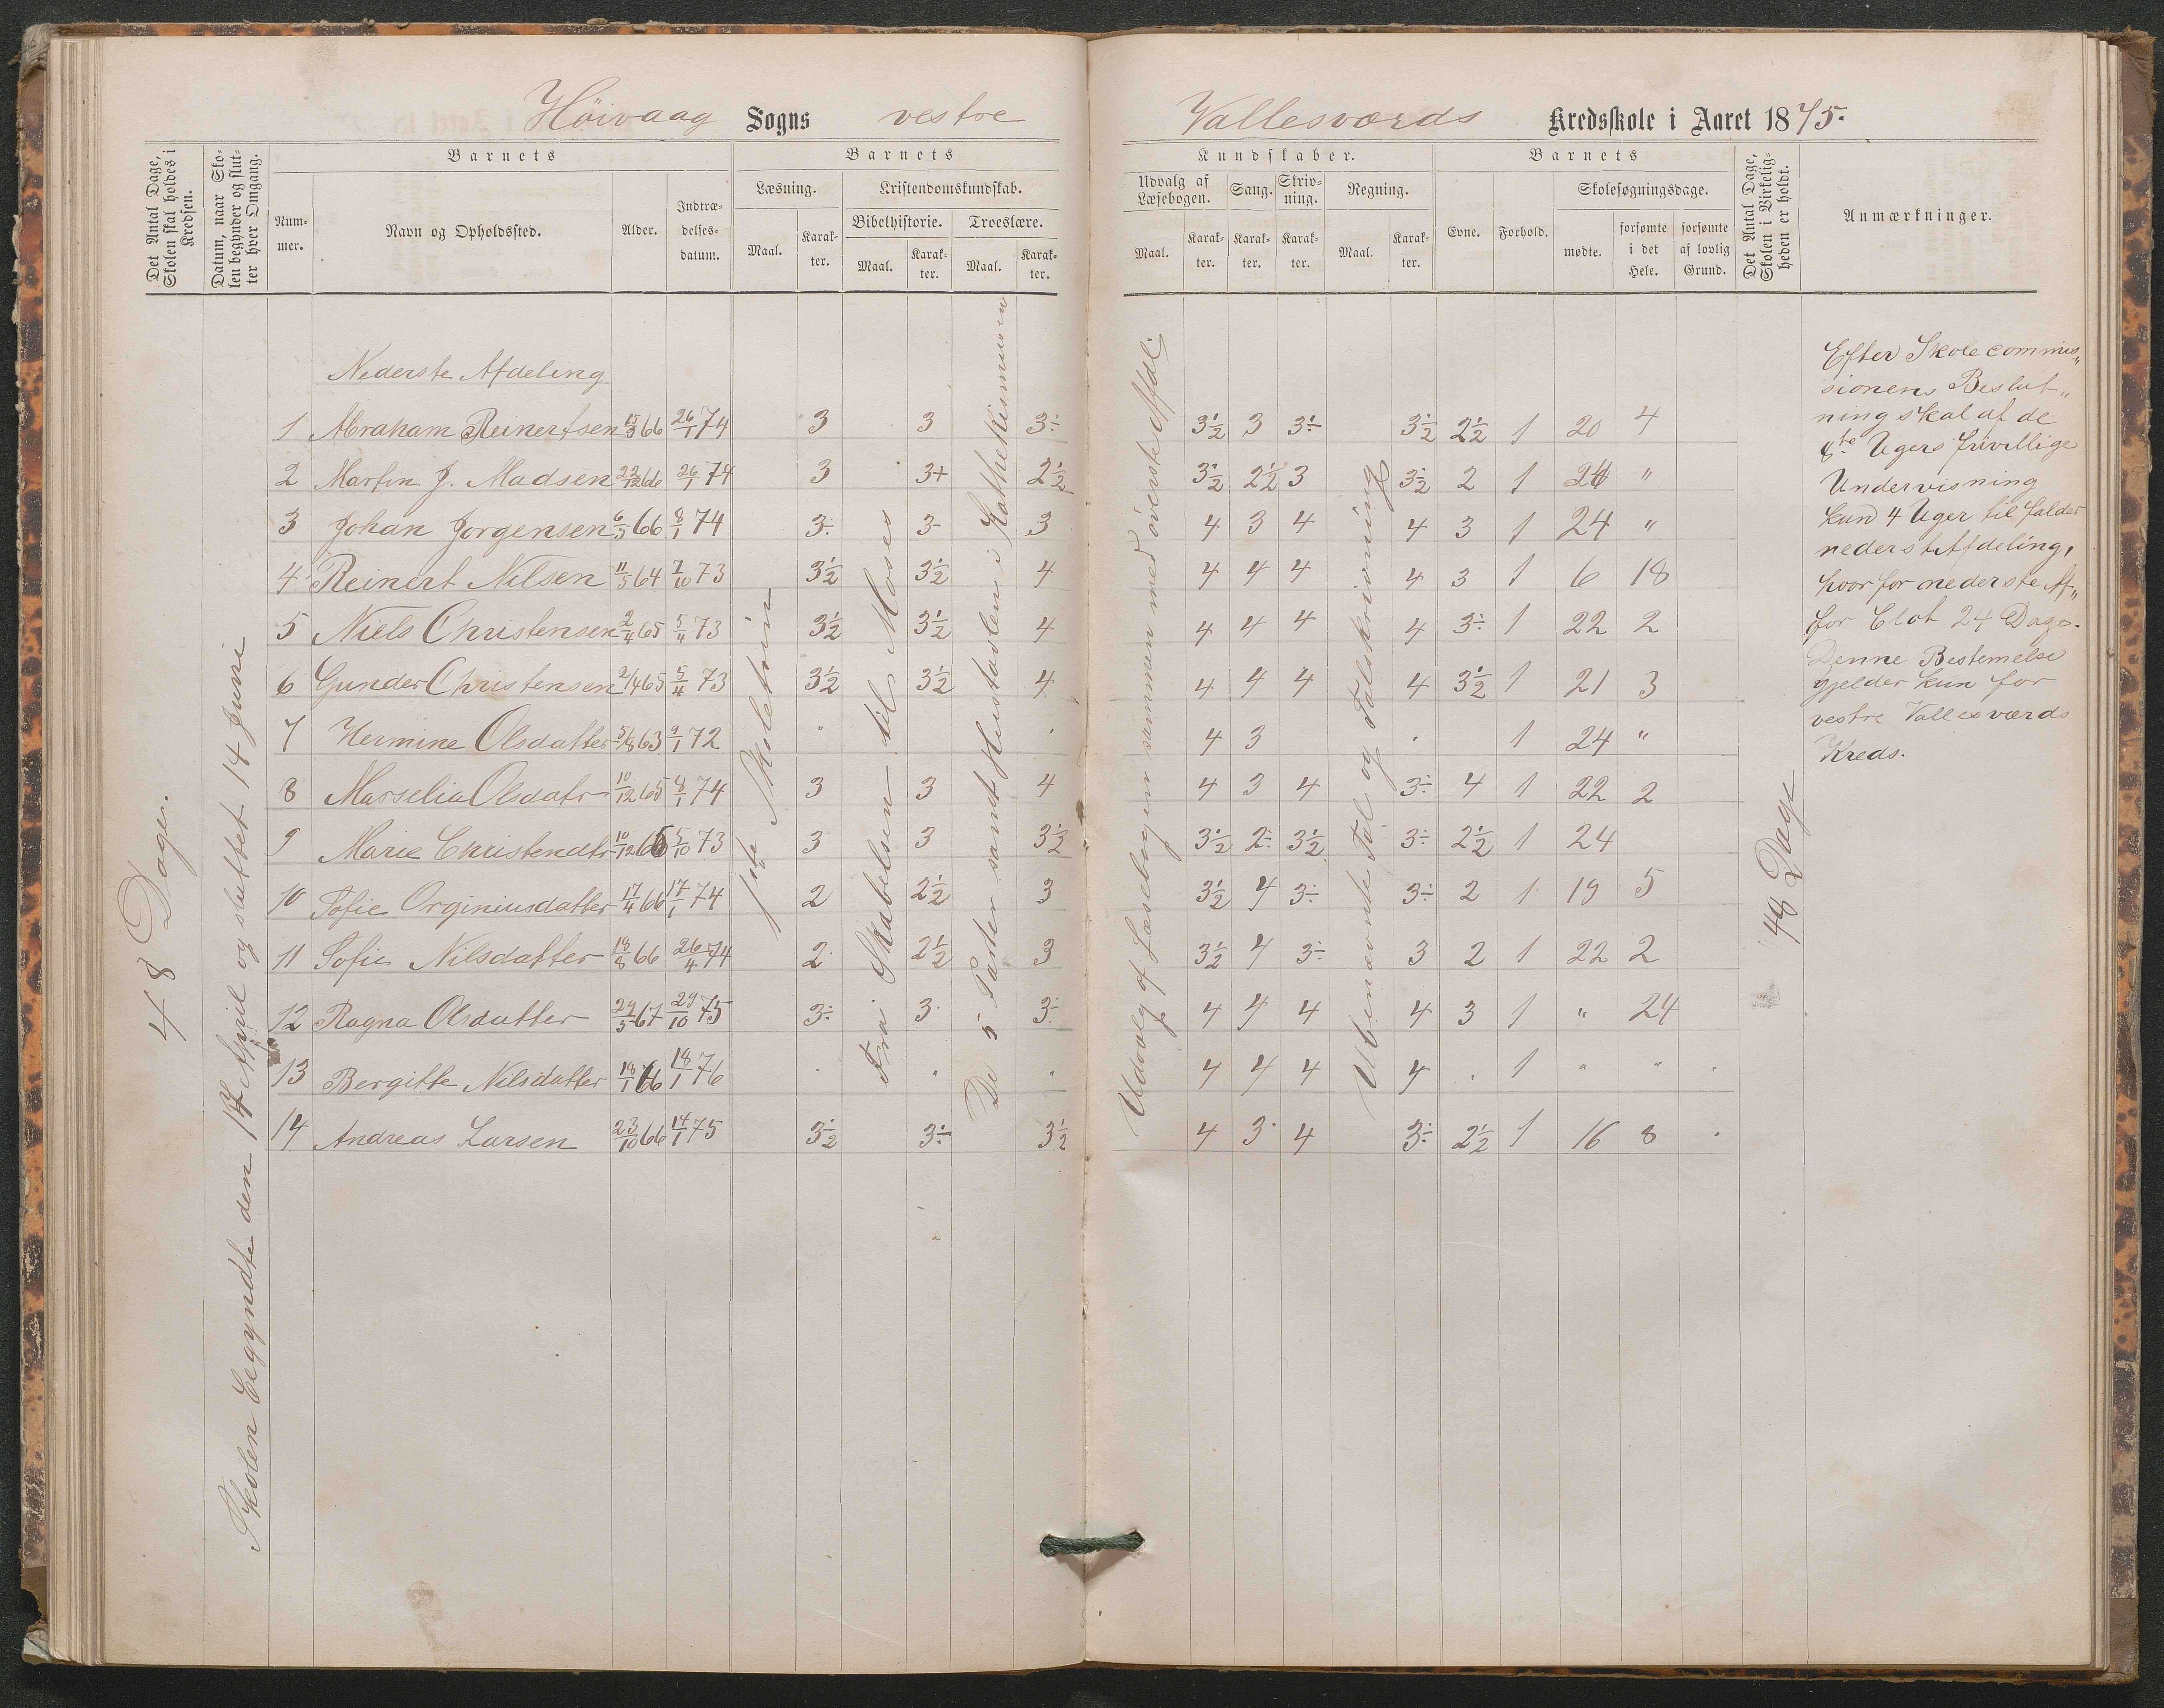 Höivaag Sogns vestre Vallesværds Kredsskole i Aaret 1875.
Det Antal Dage, Skolen skal holdes i Kredsen.
Datum, naar Skolen begynder og slutter hver Omgang.
Barnets
Nummer.
Navn og Opholdssted.
Alder.
Indtrædelsesdatum.
Barnets
Læsning.
Maal.
Karakter.
Kristendomskundskab.
Bibelhistorie.
Maal.
Karakter.
Troeslære.
Maal.
Karakter.
Kundskaber.
Udvalg af Læsebogen.
Maal.
Karakter.
Sang.
Karakter.
Skrivning.
Karakter.
Regning.
Maal.
Karakter.
Barnets
Evne.
Forhold.
Skolesøgningsdage.
mødte.
forsømte i det Hele.
forsømte af lovlig Grund.
Det Antal Dage, Skolen i Virkeligheden er holdt.
Anmærkninger.
48 Dage.
Skolen begyndte den 14 April og sluttet 14 Juni
Nederste Afdeling
1 Abraham Reinertsen 15/3 66 26/1 74 3 3 3÷ 3½ 3 3÷ 3½ 2½ 1 20 4
2 Martin J. Madsen 22/12 66 26/1 74 3 3+ 2½ 3½ 2½ 3 3½ 2 1 24 "
3 Johan Jorgensen 6/5 66 8/1 74 3÷ 3- 3 4 3 4 4 3 1 24 "
4 Reinert Nilsen 11/5 64 7/10 73 3½ 3½ 4 4 4 4 4 3 1 6 18
5 Niels Christensen 2/4 65 5/4 73 3½ 3½ 4 4 4 4 4 3÷ 1 22 2
6 Gunder Christensen 2/4 65 5/4 73 3½ 3½ 4 4 4 4 4 3½ 1 21 3
7 Hermine Olsdatter 5/8 63 9/1 72 " 4 3 1 24 "
8 Masselia Olsdatr 10/12 65 8/1 74 3 3 4 4 3 4 3÷ 4 1 22 2
9 Marie Christendtr 10/12 65 5/10 73 3 3 3½ 3½ 2÷ 3½ 3÷ 2½ 1 24
10 Tofie Orginiusdatter 17/4 66 17/1 74 2 2½ 3 3½ 4 3÷ 3÷ 2 1 19 5
11 Sofie Nilsdatter 18/8 66 26/4 74 2 2½ 3 3½ 4 3÷ 3 2 1 22 2
12 Ragna Olsdatter 29/5 67 29/10 75 3÷ 3 3÷ 4 4 4 4 3 1 " 24
13 Bergitte Nilsdatter 18/1 66 18/1 76 " " 4 4 4 4 1 " "
14 Andreas Larsen 23/10 66 14/1 75 3½ 3÷ 3½ 4 3 4 3÷ 2½ 1 16 8
1ste Skoletrin
Fra Skabelsen til Moses
De 5 Parter samt Hustavlen i Kathekismusen
Udvalg af Læsebogen sammen med øverste Afdl.
Ubenævnte Tal og Talskrivning
48 Dage
Efter Skolecommis„
sionens Beslut„
ning skal af de
8te Ugers frivillige
Undervisning
kun 4 Uger tilfalde
nederst Afdeling,
hvorfor nederste Af„
for blot 24 Dage.
Denne Bestemelse
gjelder kun for
vestre Vallesværds
Kreds.